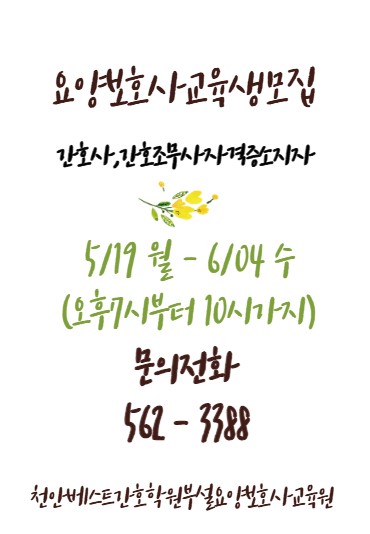 요양보호사교육생모집
간호사,간호조무사자격증소지자
5/19 월 - 6/04 수
(오후7시부터 10시까지)
문의전화
562 - 3388
천안베스트간호학원부설요양보호사교육원